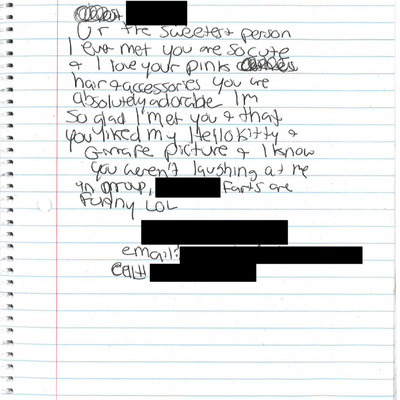 Ur the sweetest person
I ever met you are so cute
& I love your pinks
hair & accessories you are
absolutely adorable Im
so glad I met you & that
you liked my Hello Kitty &
Giraffe picture & I know
you weren't laughing at me
in group, farts are
funny LOL
email:
Cell#